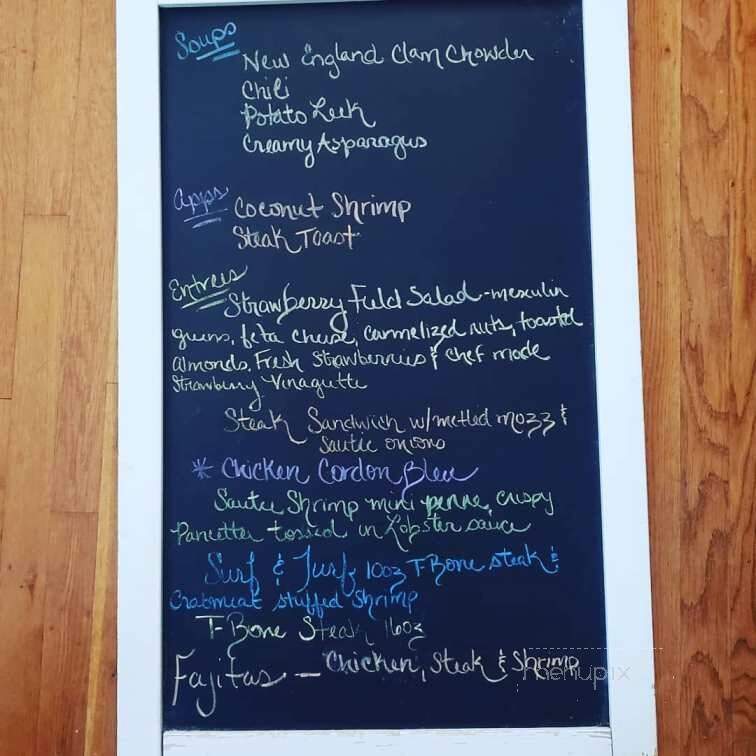 Soups
New England Clam Chowder
Chili
Potato Leek
Creamy Asparagus
Apps
Coconut Shrimp
Steak Toast
Entrees
Strawberry Field Salad - mesculin
greens, feta cheese, carmelized nuts, toasted
almonds, Fresh Strawberries & chef made
Strawberry Vinagutte
Steak Sandwich w/melted mozz &
Sautee onions
* Chicken Cordon Bleu
Sautee Shrimp mini penne, crispy
Pancetta tossed in Lobster sauce
Surf & Turf 10oz T-Bone steak &
Crabmeat stuffed Shrimp
T-Bone Steak 16oz
Fajitas - Chicken, Steak & Shrimp
menupix